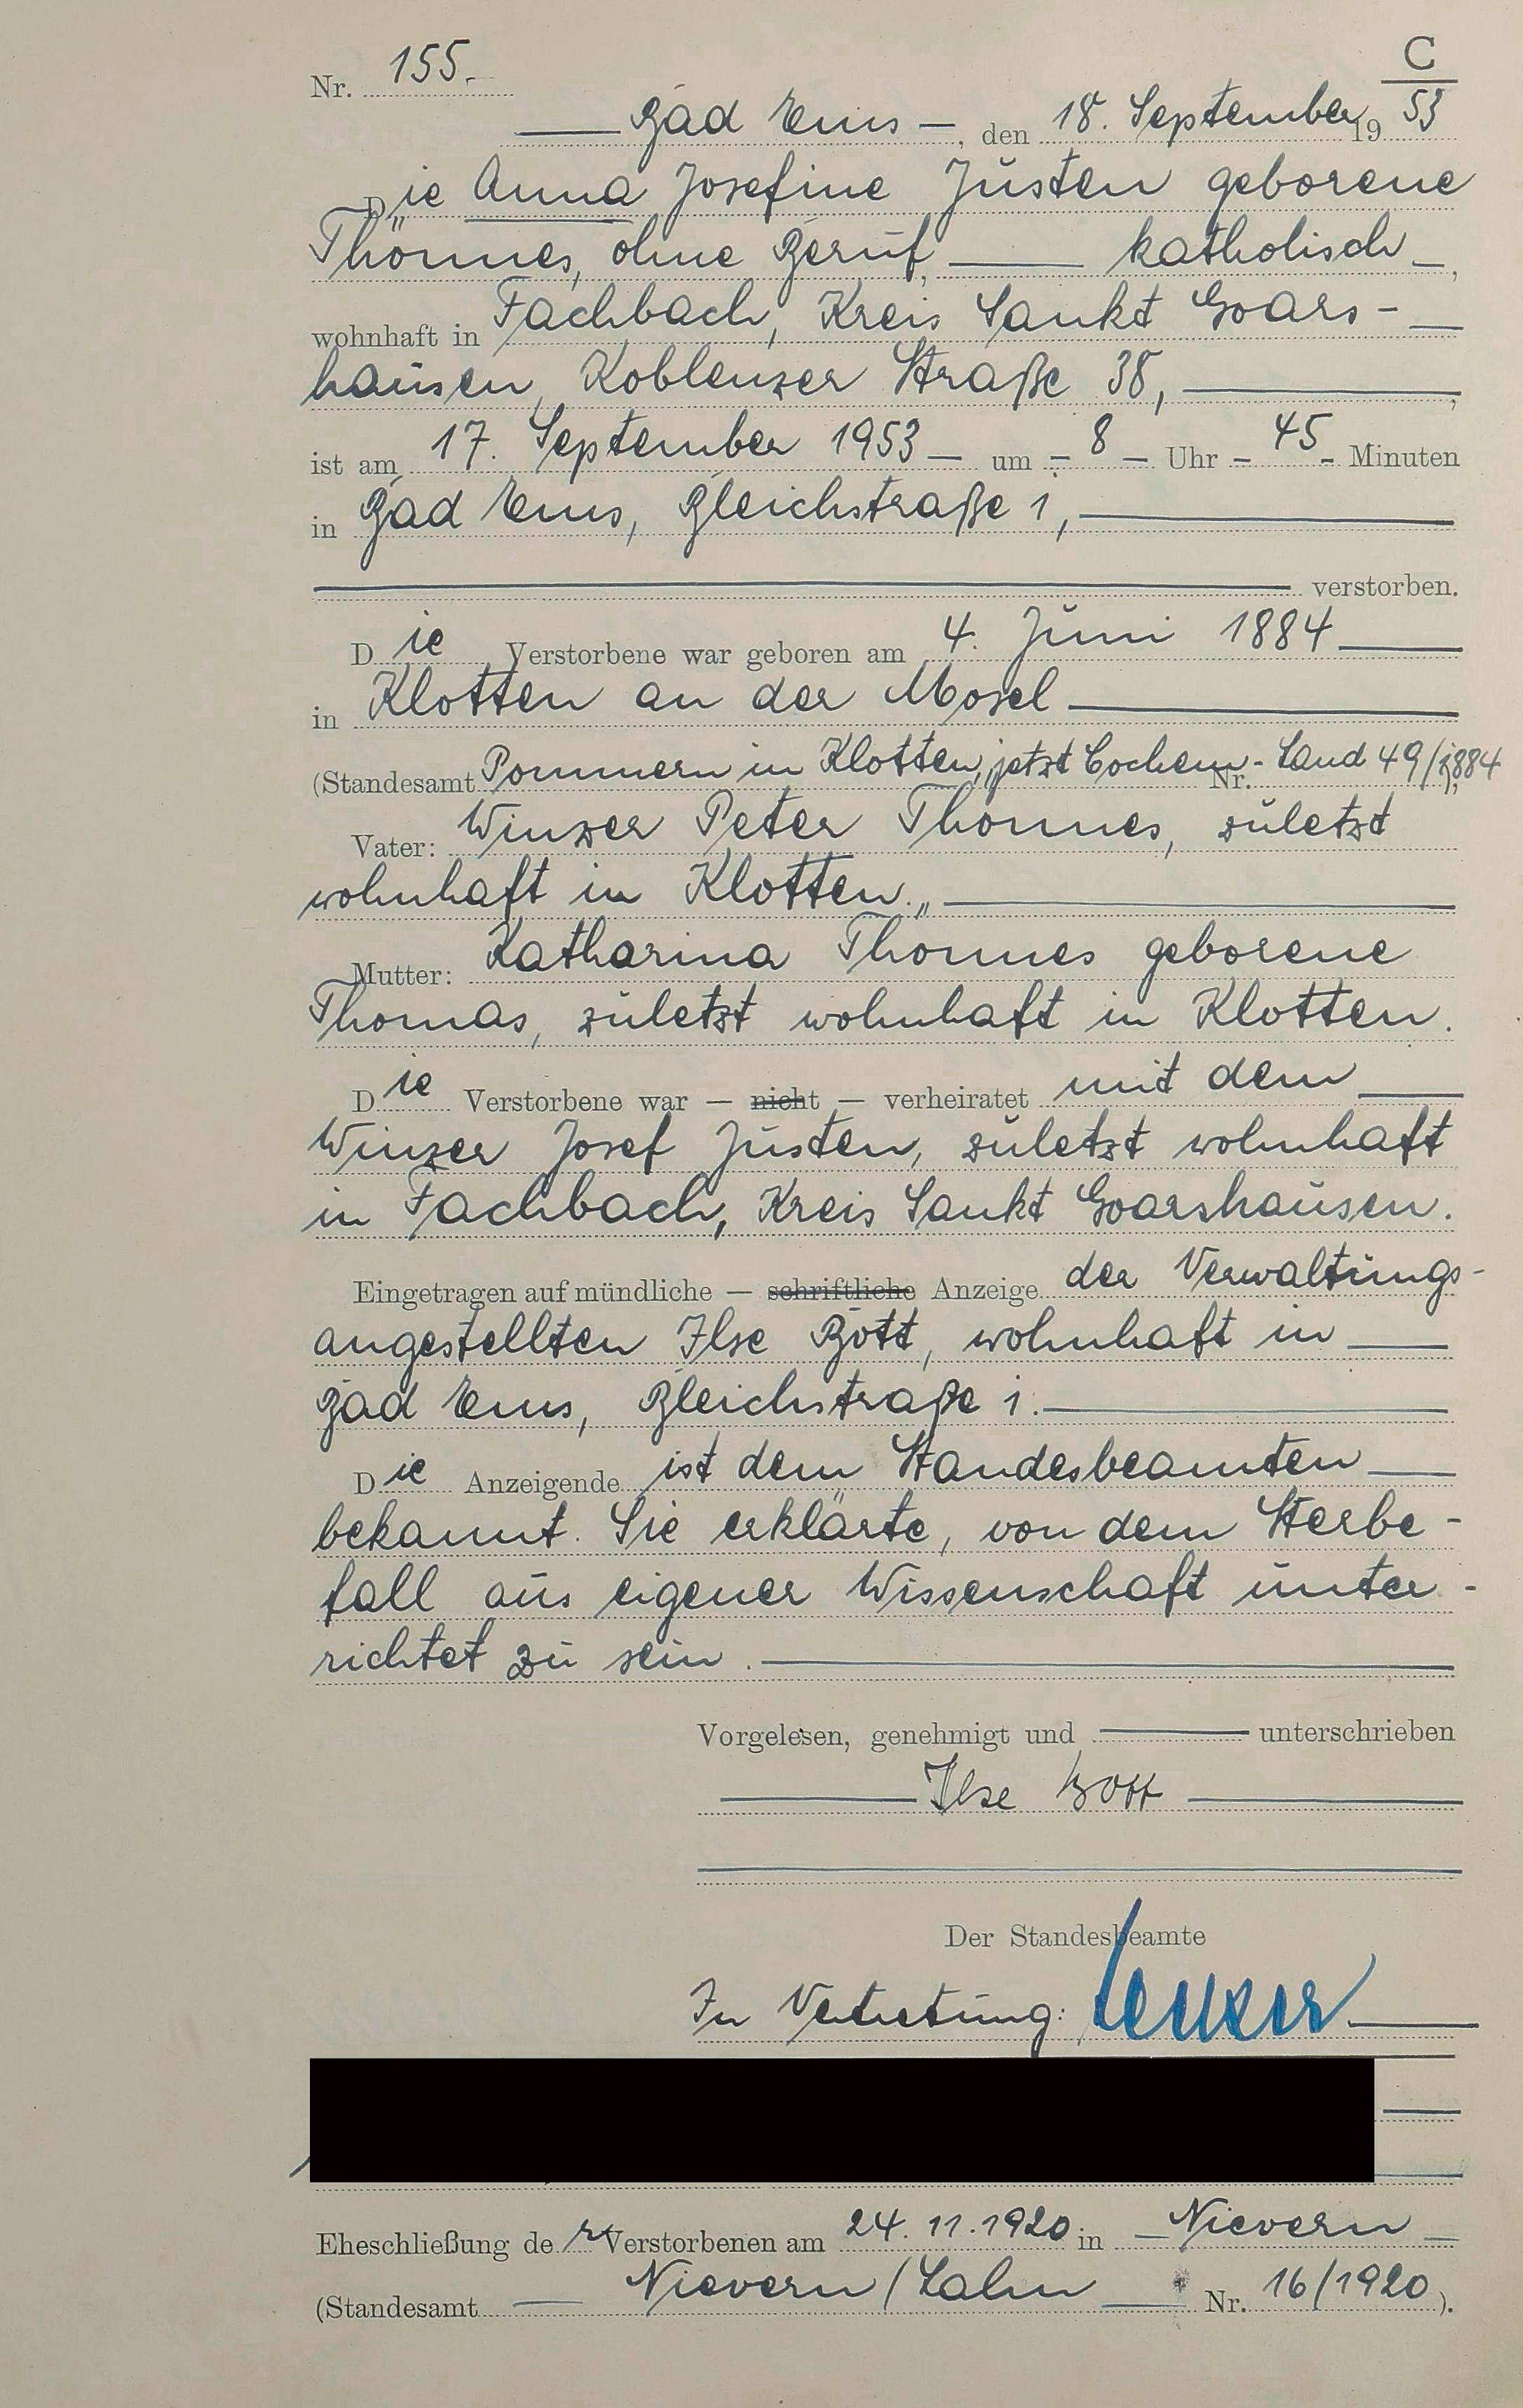 C
Nr. 155.
Bad Ems —, den 18. September 19 53
Die Anna Josefine Justen geborene
Thönnes, ohne Beruf, — katholisch —,
wohnhaft in Fachbach, Kreis Sankt Goars-
hausen, Koblenzer Straße 38, —,
ist am 17. September 1953 — um — 8 — Uhr — 45 — Minuten
in Bad Ems, Bleichstraße 1, —
verstorben.
Die Verstorbene war geboren am 4. Juni 1884
in Klotten an der Mosel
(Standesamt Pommern in Klotten, jetzt Cochem-Land Nr. 49/1884),
Vater: Winzer Peter Thönnes, zuletzt
wohnhaft in Klotten.
Mutter: Katharina Thönnes geborene
Thomas, zuletzt wohnhaft in Klotten.
Die Verstorbene war — nicht — verheiratet mit dem
Winzer Josef Justen, zuletzt wohnhaft
in Fachbach, Kreis Sankt Goarshausen.
Eingetragen auf mündliche — schriftliche Anzeige der Verwaltungs-
angestellten Ilse Bott, wohnhaft in
Bad Ems, Bleichstraße 1.
Die Anzeigende ist dem Standesbeamten
bekannt. Sie erklärte, von dem Sterbe-
fall aus eigener Wissenschaft unter-
richtet zu sein.
Vorgelesen, genehmigt und — unterschrieben
Ilse Bott
Der Standesbeamte
In Vertretung:
Eheschließung der Verstorbenen am 24.11.1920 in — Nievern —
(Standesamt — Nievern/Lahn — Nr. 16/1920).